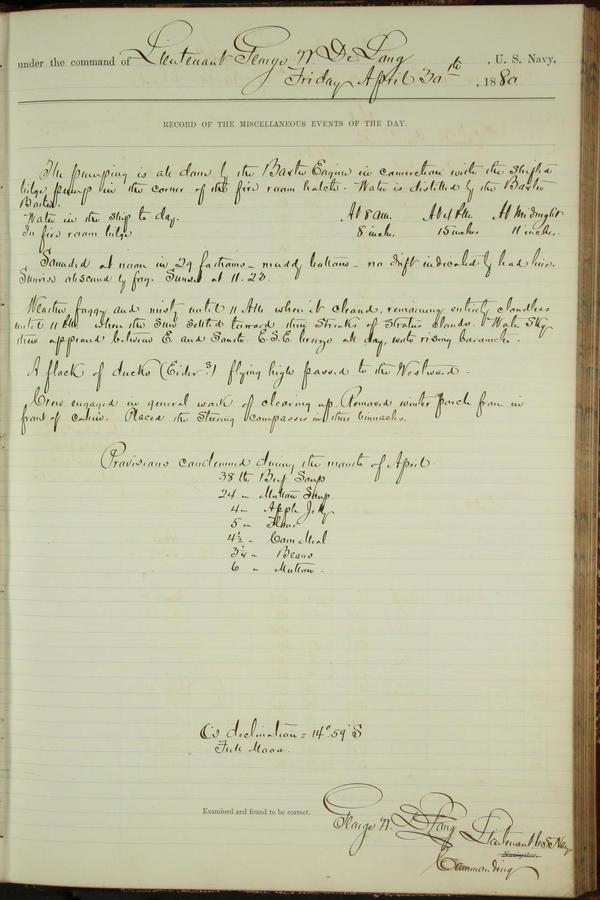 under the command of Lieutenant George W De Long , U. S. Navy,
Friday April 30th , 1880
RECORD OF THE MISCELLANEOUS EVENTS OF THE DAY.
The pumping is all done by the Baxter Engine in connection with the shifted
bilge pump in the corner of the fire room hatch. Water is distilled by the Baxter
Boiler.
Water in the ship to day. At 8 am. At 4 P.M. At Midnight
In fire room bilge 8 inches 15 inches 11 inches.
Sounded at noon in 29 fathoms - muddy bottom - no drift indicated by lead line.
Sunrise obscured by fog. Sunset at 11.23.
Weather foggy and misty until 11 AM when it cleared, remaining entirely cloudless
until 11 PM when the Sun settled toward thin Streaks of Stratus clouds. Water Sky
then appeared between E. and South. E.S.E. breeze all day, with rising barometer.
A flock of ducks (Eider?) flying high passed to the Westward.
Crew engaged in general work of clearing up. Removed winter porch from in
front of cabin. Placed the Steering Compasses in their binnacles.
Provisions condemned during the month of April
38 lbs Beef Soup
24 " Mutton Soup
4 " Apple Jelly
5 " Flour
4½ " Corn Meal
3¼ " Beans
6 " Mutton.
☾'s declination = 14°.59' S
Full Moon.
Examined and found to be correct.
George W. De Long Lieutenant U.S. Navy
Navigator.
Commanding